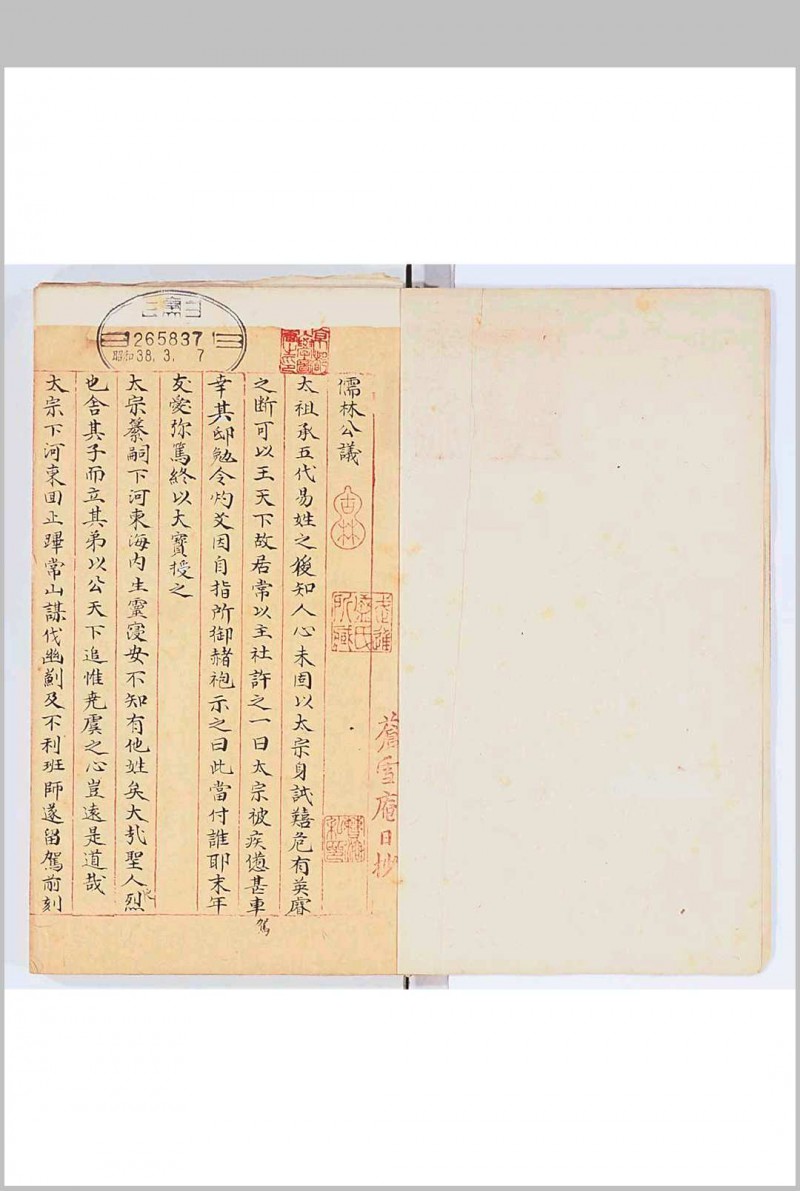 儒林公議
太祖承五代易姓之後知人心未固以太宗身試艱危有英睿
之断可以王天下故居常以主社許之一日太宗被疾憊甚車
駕
幸其邸勉令灼艾因自指所御赭袍示之曰此當付誰耶末年
友愛弥篤終以大寶授之
太宗纂嗣下河東海内生靈寖安不知有他姓矣大㢤聖人烈
也舍其子而立其弟以公天下追惟堯虞之心豈遠是道哉
太宗下河東回止蹕常山謀伐幽薊及不利班師遂留駕前刻
蒼雪庵日抄
古林
1265837
昭和38. 3. 7